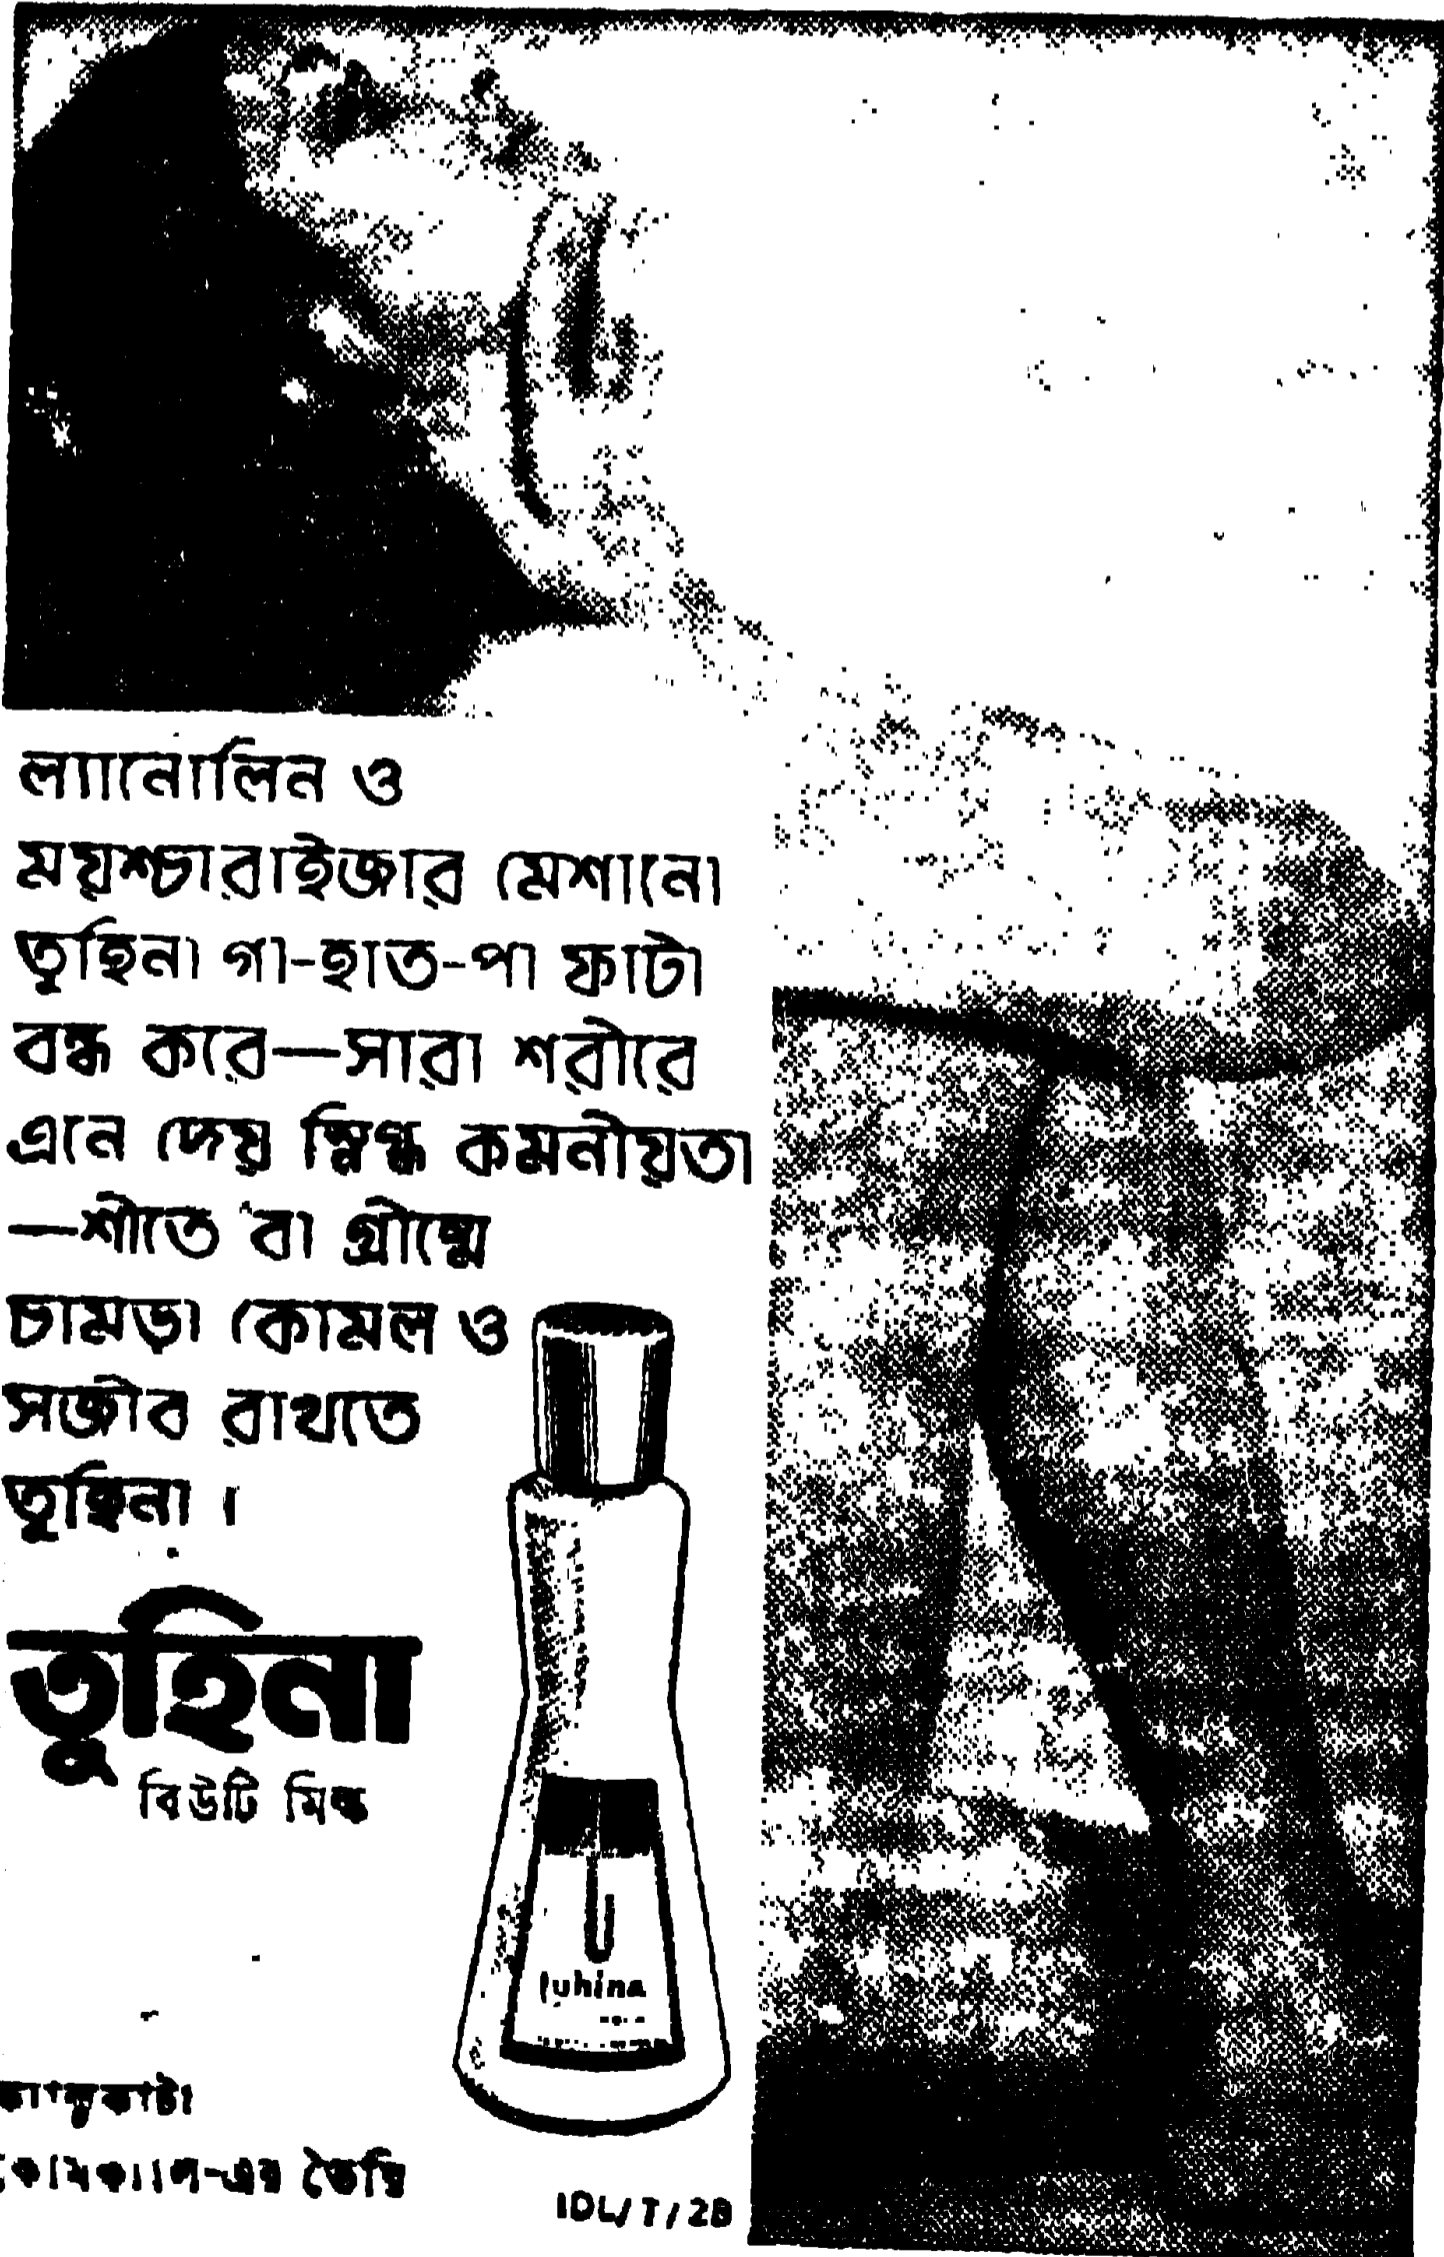 ল্যানোলিন ও
ময়শ্চারাইজার মেশানো
তুহিনা গা-হাত-পা ফাটা
বন্ধ করে—সারা শরীরে
এনে দেয় স্নিগ্ধ কমনীয়তা
—শীতে বা গ্রীষ্মে
চামড়া কোমল ও
সজীব রাখতে
তুহিনা ।
তুহিনা
বিউটি মিল্ক
tuhina
ক্যালকাটা
কেমিক্যাল-এর তৈরি
IDL/T/28